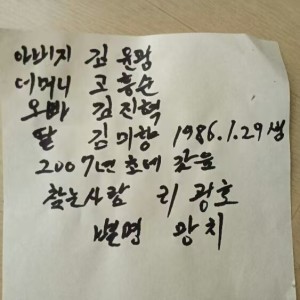 아버지 김윤광
어머니 고흥순
오빠 김진혁
딸 김미향 1986.1.29생
2007년 초에 갔음
찾는사람 리광호
별명 망치